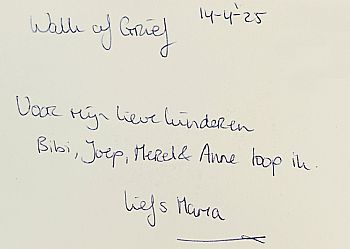 Walk of Grief 14-4-'25
Voor mijn lieve kinderen
Bibi, Joep, Merel & Anne loop ik.
liefs Maria